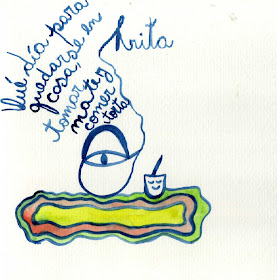 Qué día para
quedarse en
casa,
tomar
mate y
comer
tortas